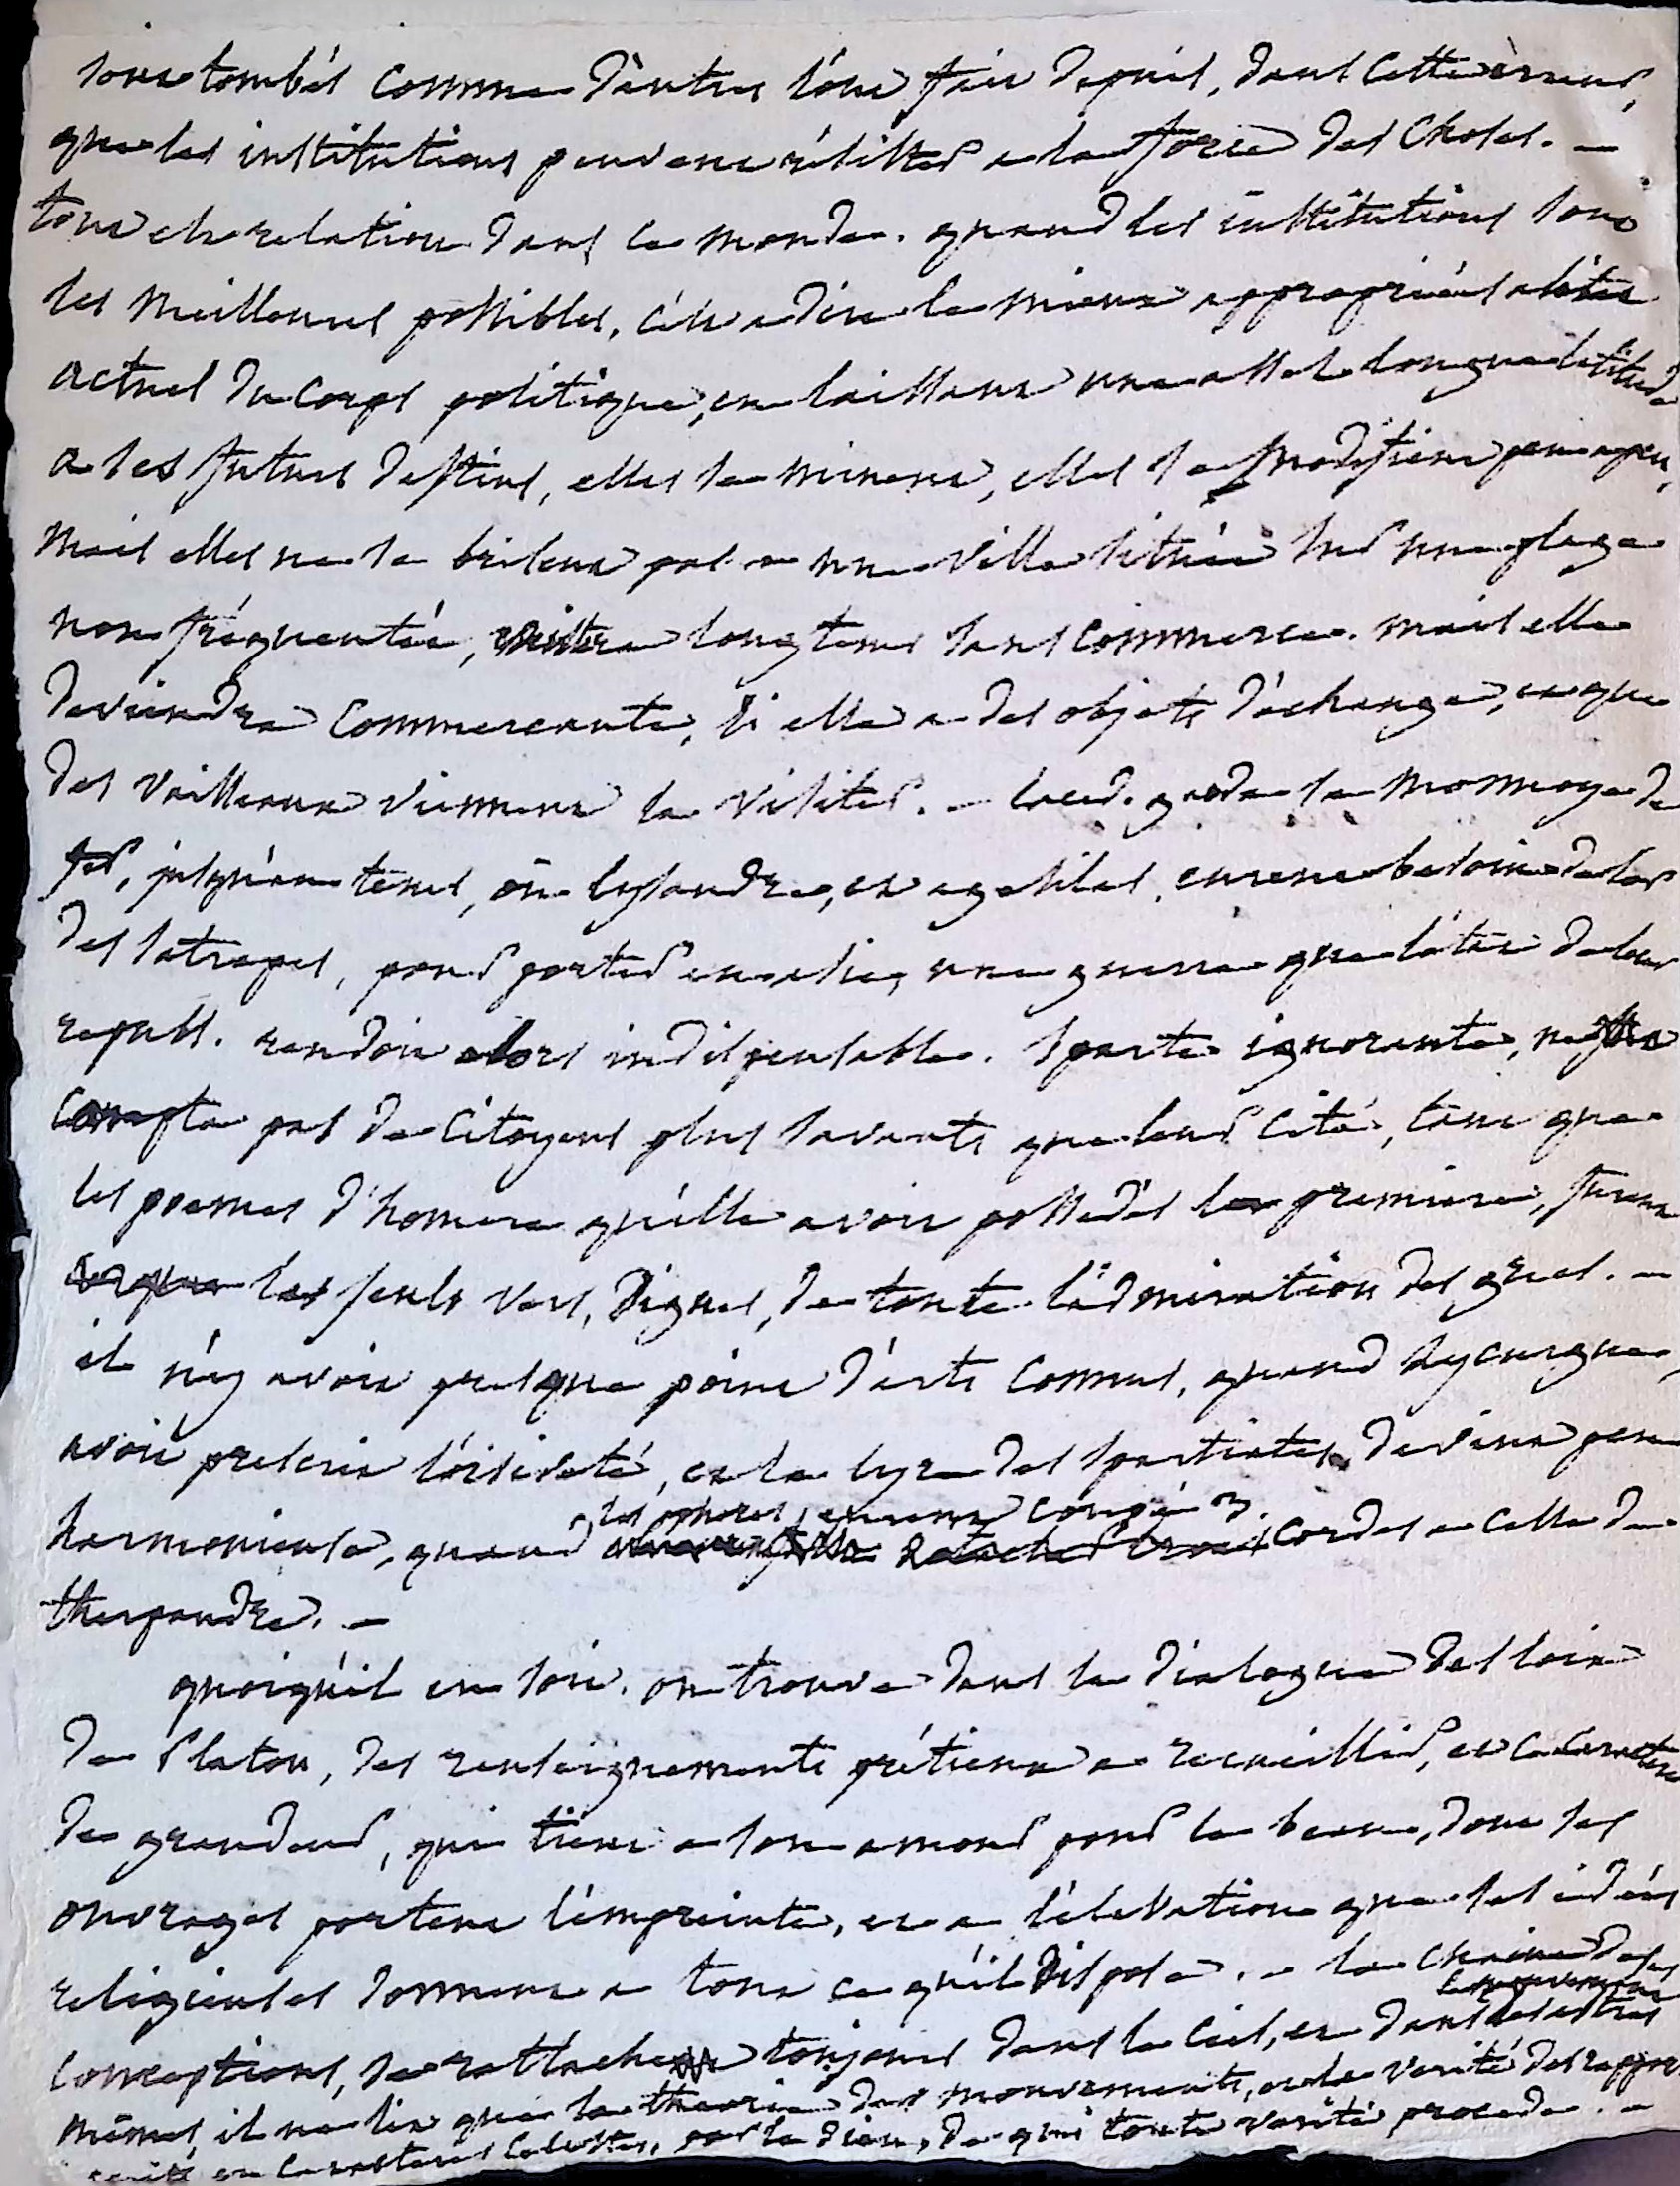 sont tombés comme d'autres l'ont fait depuis, dans cette erreur,
que les institutions peuvent résister a la force des choses. —
tout est relation dans ce monde. quand les institutions sont
les meilleures possibles, c'est a dire le mieux appropriées a l'état
actuel du corps politique, en laissant une assez longue latitude
a ses futurs destins, elles se minent, elles se modifient peu a peu,
mais elles ne se brisent pas. — une ville située sur une plage
non fréquentée, restera longtems sans commerce. mais elle
deviendra commercante, si elle a des objets d'échange, et que
des vaisseaux viennent la visiter. — laced. garda sa monnoye de
fer, jusqu'au tems, où lysandre, et agesilas, eurent besoin de l'or
des satrapes, pour porter en asie, une guerre que l'état de leur
republ. rendoit alors indispensable. Sparte ignorante, ne
compta pas de citoyens plus savants que leur cité, tant que
les poemes d'homere qu'elle avoit possedés la premiere, furent
les seuls vers, dignes, de toute l'admiration des grecs. —
il n'y avoit presque point d'arts connus, quand Lycurgue,
avoit prescrit l'oisiveté, et la lyre des spartiates, devint peu
les ephores, eurent coupé 3.
harmonieuse, quand cordes a celle de
therpandre. —
quoiqu'il en soit. on trouve dans le dialogue des loix
de Platon, des renseignements prétieux a recueillir, et ce caractere
de grandeur, qui tient a son amour pour le beau, dont ses
ouvrages portent l'empreinte, et a l'élévation que les idées
religieuses donnent a tout ce qu'il dispose. — la chaine de ses
conceptions, se rattache toujours dans le ciel, et dans les astres
mêmes, il ne lit que la theorie des mouvements, et la verité des rappor
en caracteres celestes, par le dieu, de qui toute verité procede. —